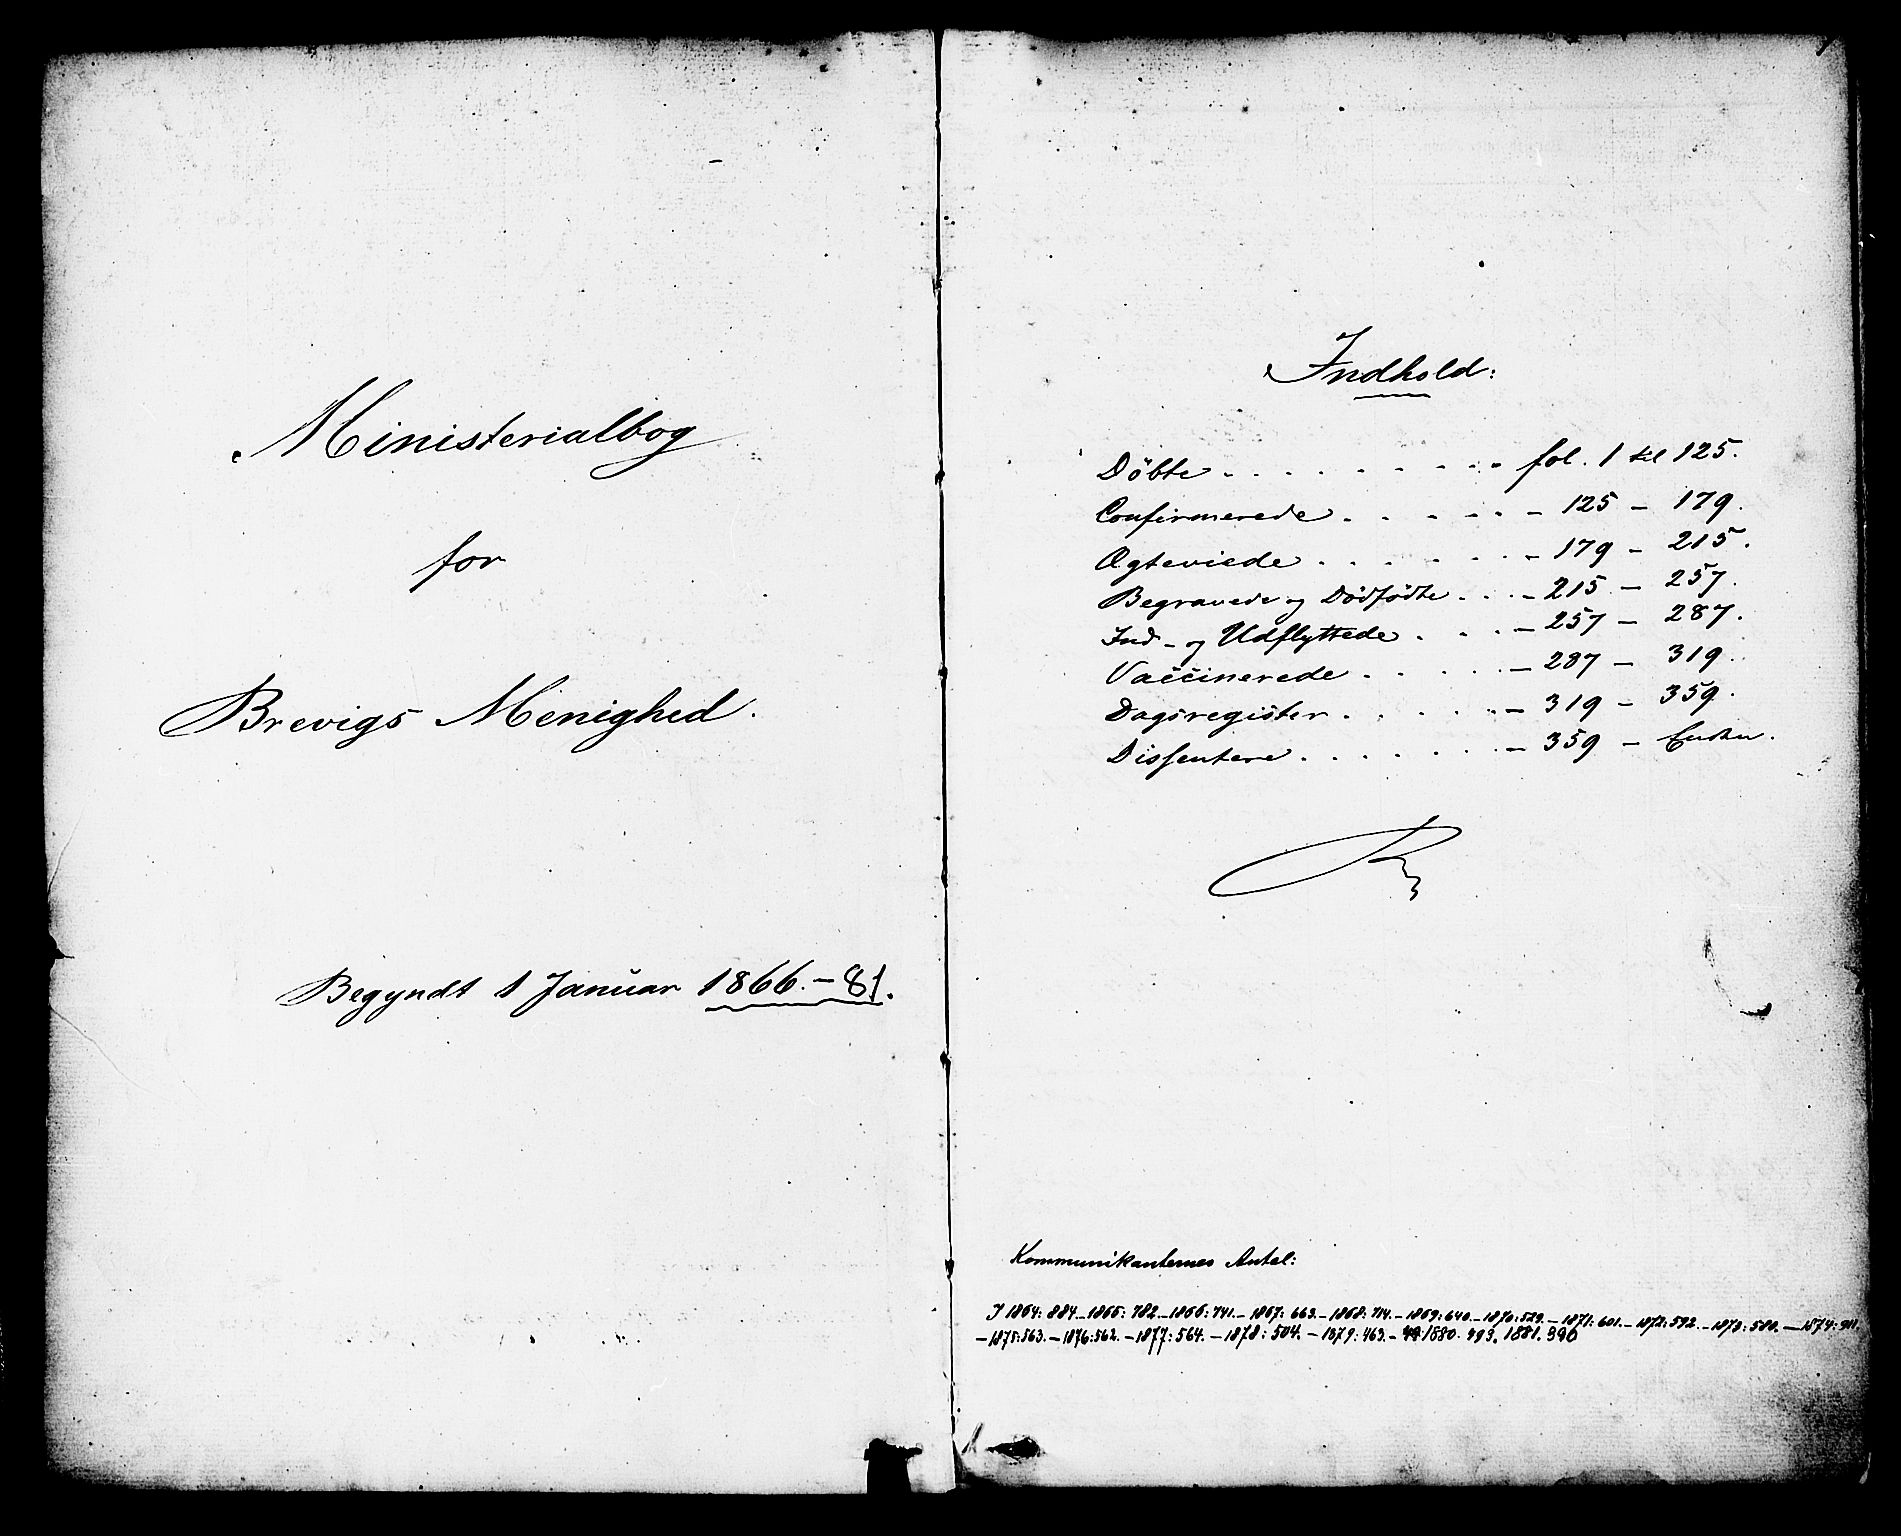 Ministerialbog
for
Brevigs Menighed.
Begyndt 1 Januar 1866.–81.
Indhold:
Döbte . . . . . . . . . fol. 1 til 125.
Confirmerede . . . . . – 125 – 179.
Ægteviede . . . . . . – 179 – 215.
Begravede og Dödfödte . . . – 215 – 257.
Ind- og Udflyttede . . . – 257 – 287.
Vaccinerede . . . . . – 287 – 319.
Dagsregister . . . . . – 319 – 359.
Dissentere . . . . . . – 359 – Enden.
Kommunikanternes Antal:
I 1864: 884.–1865: 782.–1866: 741.–1867: 663.–1868: 714.–1869: 640.–1870: 529.–1871: 601.–1872: 592.–1873: 580.–1874:
–1875: 563.–1876: 562.–1877: 564.–1878: 504.–1879: 463.– 1880. 493. 1881. 390